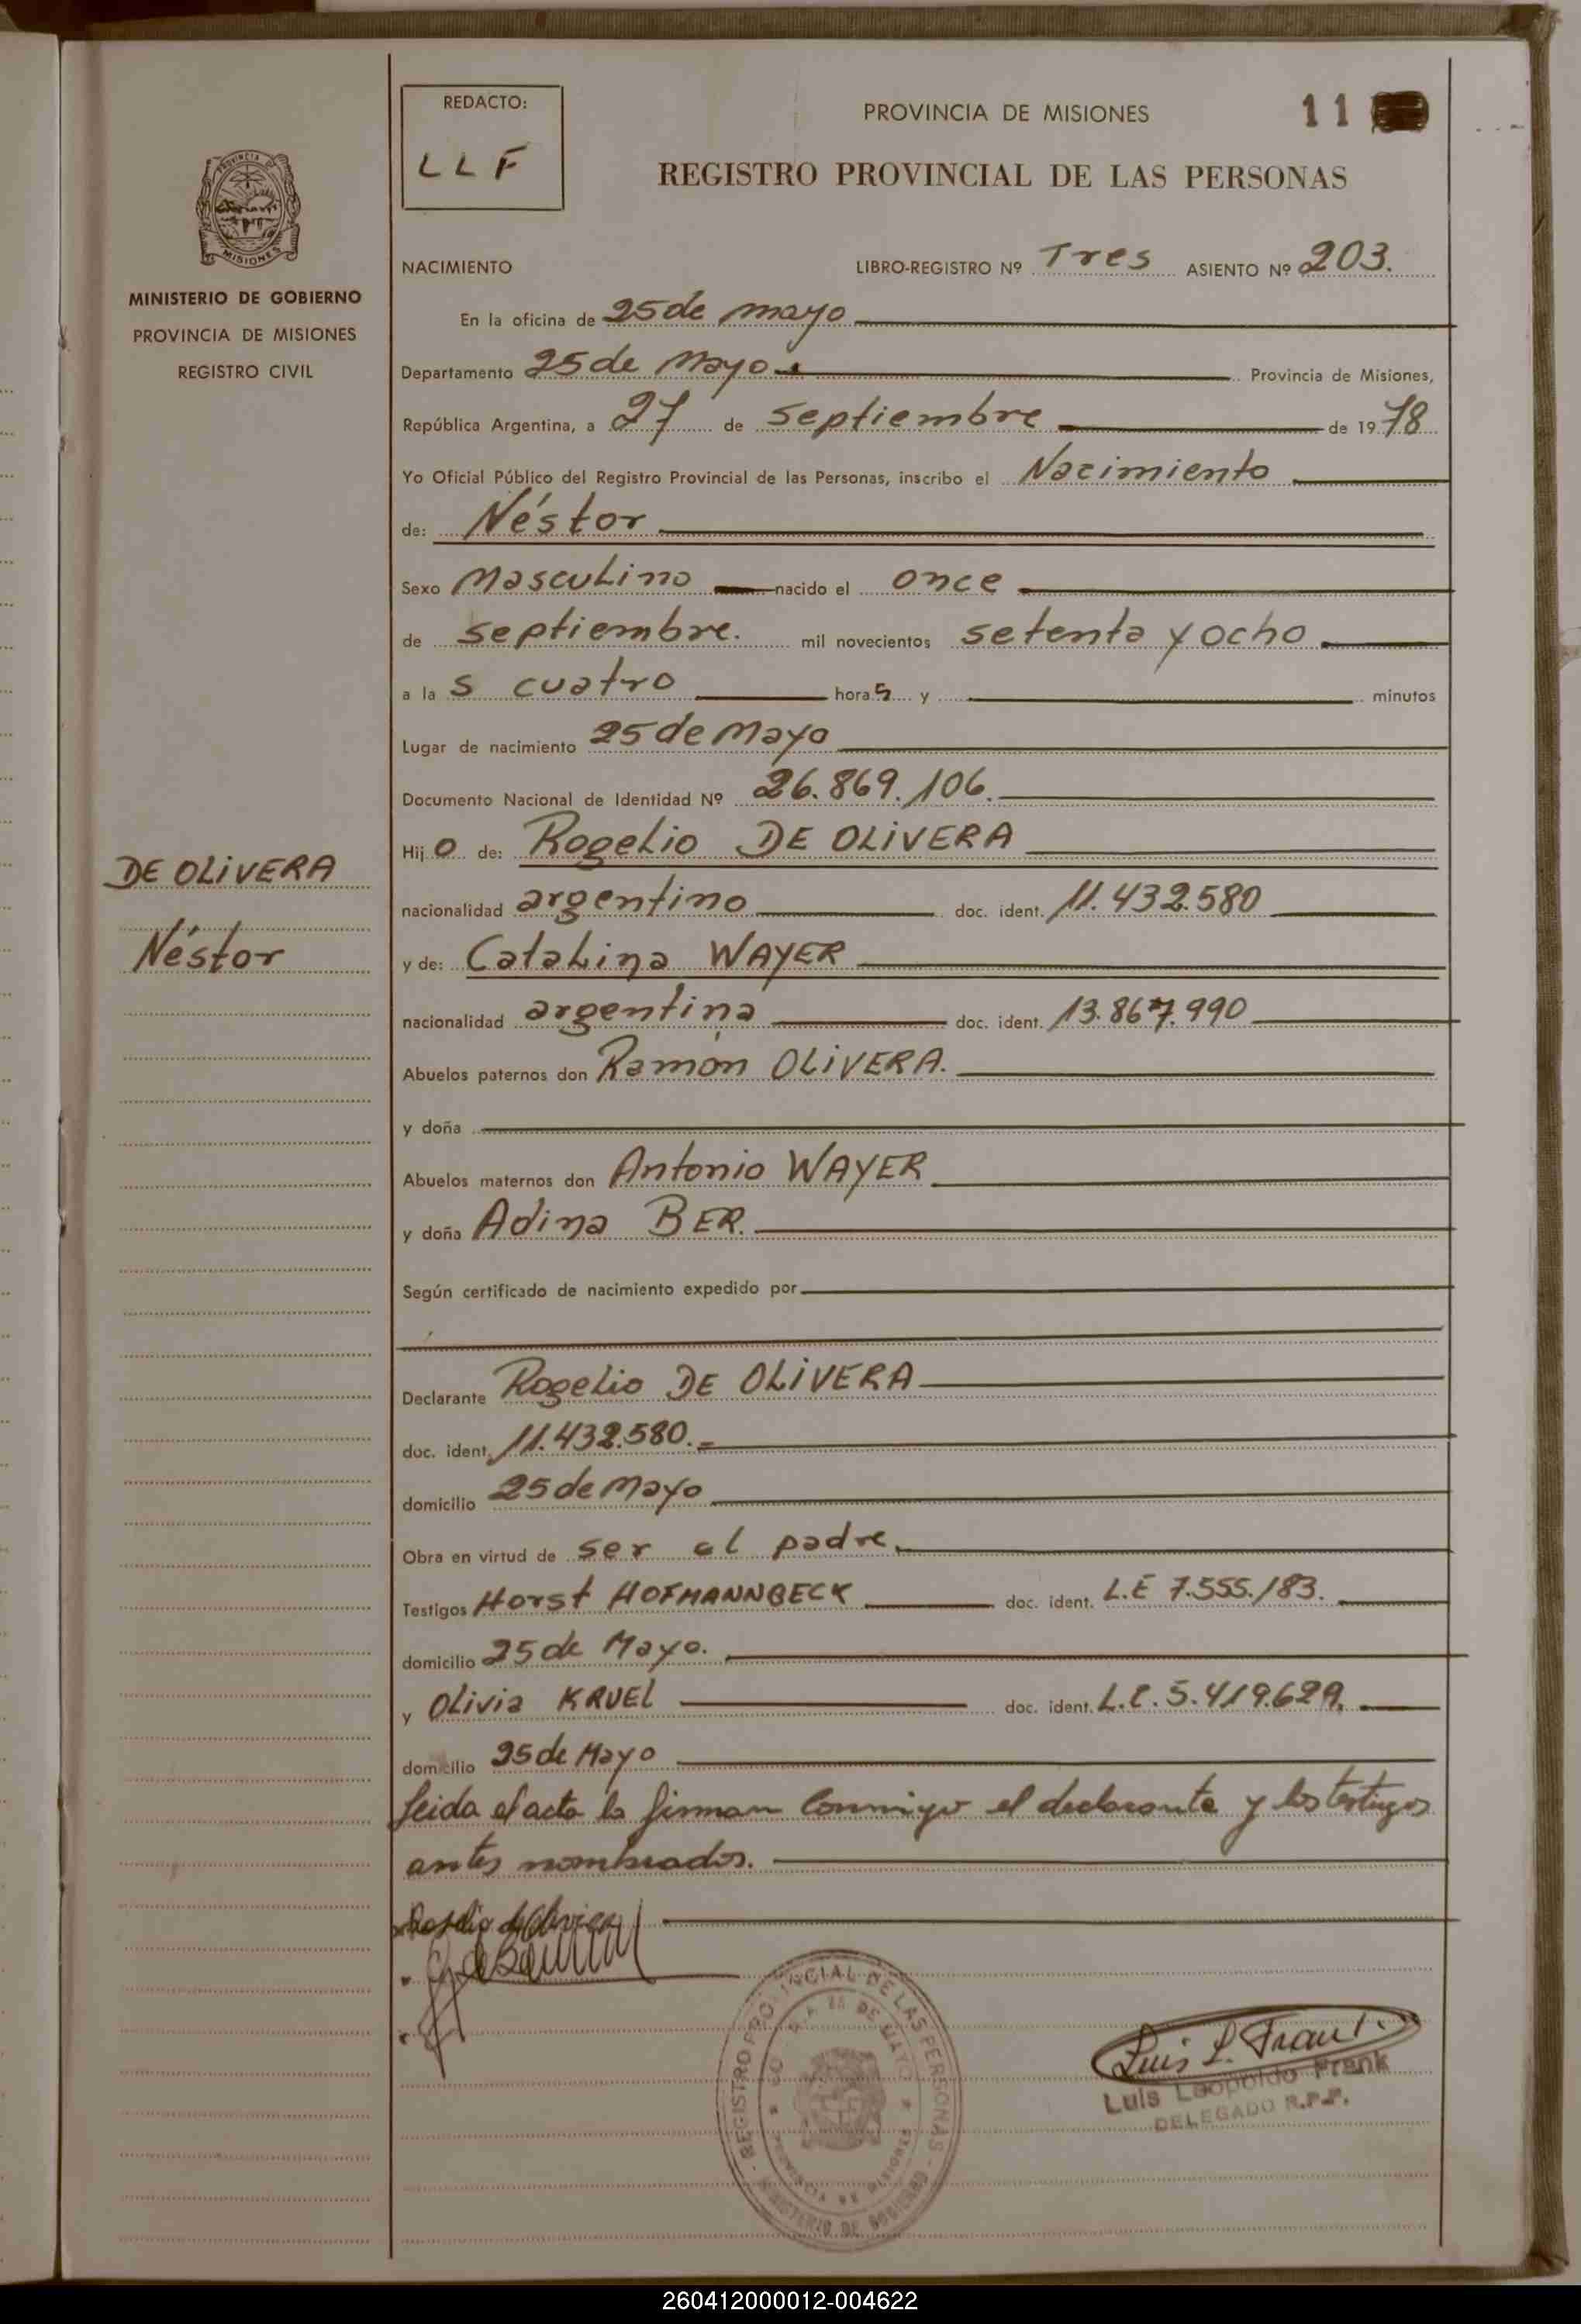 REDACTO:
LLF
PROVINCIA DE MISIONES
11
REGISTRO PROVINCIAL DE LAS PERSONAS
PROVINCIA DE
MISIONES
MINISTERIO DE GOBIERNO
PROVINCIA DE MISIONES
REGISTRO CIVIL
NACIMIENTO LIBRO-REGISTRO Nº Tres ASIENTO Nº 203.
En la oficina de 25 de mayo
Departamento 25 de Mayo Provincia de Misiones,
República Argentina, a 27 de septiembre de 1978
Yo Oficial Público del Registro Provincial de las Personas, inscribo el Nacimiento
de: Néstor
Sexo Masculino nacido el once
de septiembre. mil novecientos setenta y ocho
a las cuatro horas y minutos
Lugar de nacimiento 25 de Mayo
Documento Nacional de Identidad Nº 26.869.106.
Hijo de: Rogelio DE OLIVERA
DE OLIVERA
nacionalidad argentino doc. ident. 11.432.580
Néstor
y de: Catalina WAYER
nacionalidad argentina doc. ident. 13.867.990
Abuelos paternos don Ramón OLIVERA.
y doña
Abuelos maternos don Antonio WAYER
y doña Adina BER.
Según certificado de nacimiento expedido por
Declarante Rogelio DE OLIVERA
doc. ident. 11.432.580.
domicilio 25 de Mayo
Obra en virtud de ser el padre
Testigos Horst HOFMANNBECK doc. ident. L.E 7.555.183.
domicilio 25 de Mayo.
y Olivia KRUEL doc. ident. L.C. 5.419.629.
domicilio 25 de Mayo
leida el acta la firman Conmigo el declarante y los testigos
antes nombrados.
Rogelio de Olivera
REGISTRO PROVINCIAL DE LAS PERSONAS
25 DE MAYO
PROVINCIA DE MISIONES
MINISTERIO DE GOBIERNO
Luis L. Frank
Luis Leopoldo Frank
DELEGADO R.P.P.
260412000012-004622